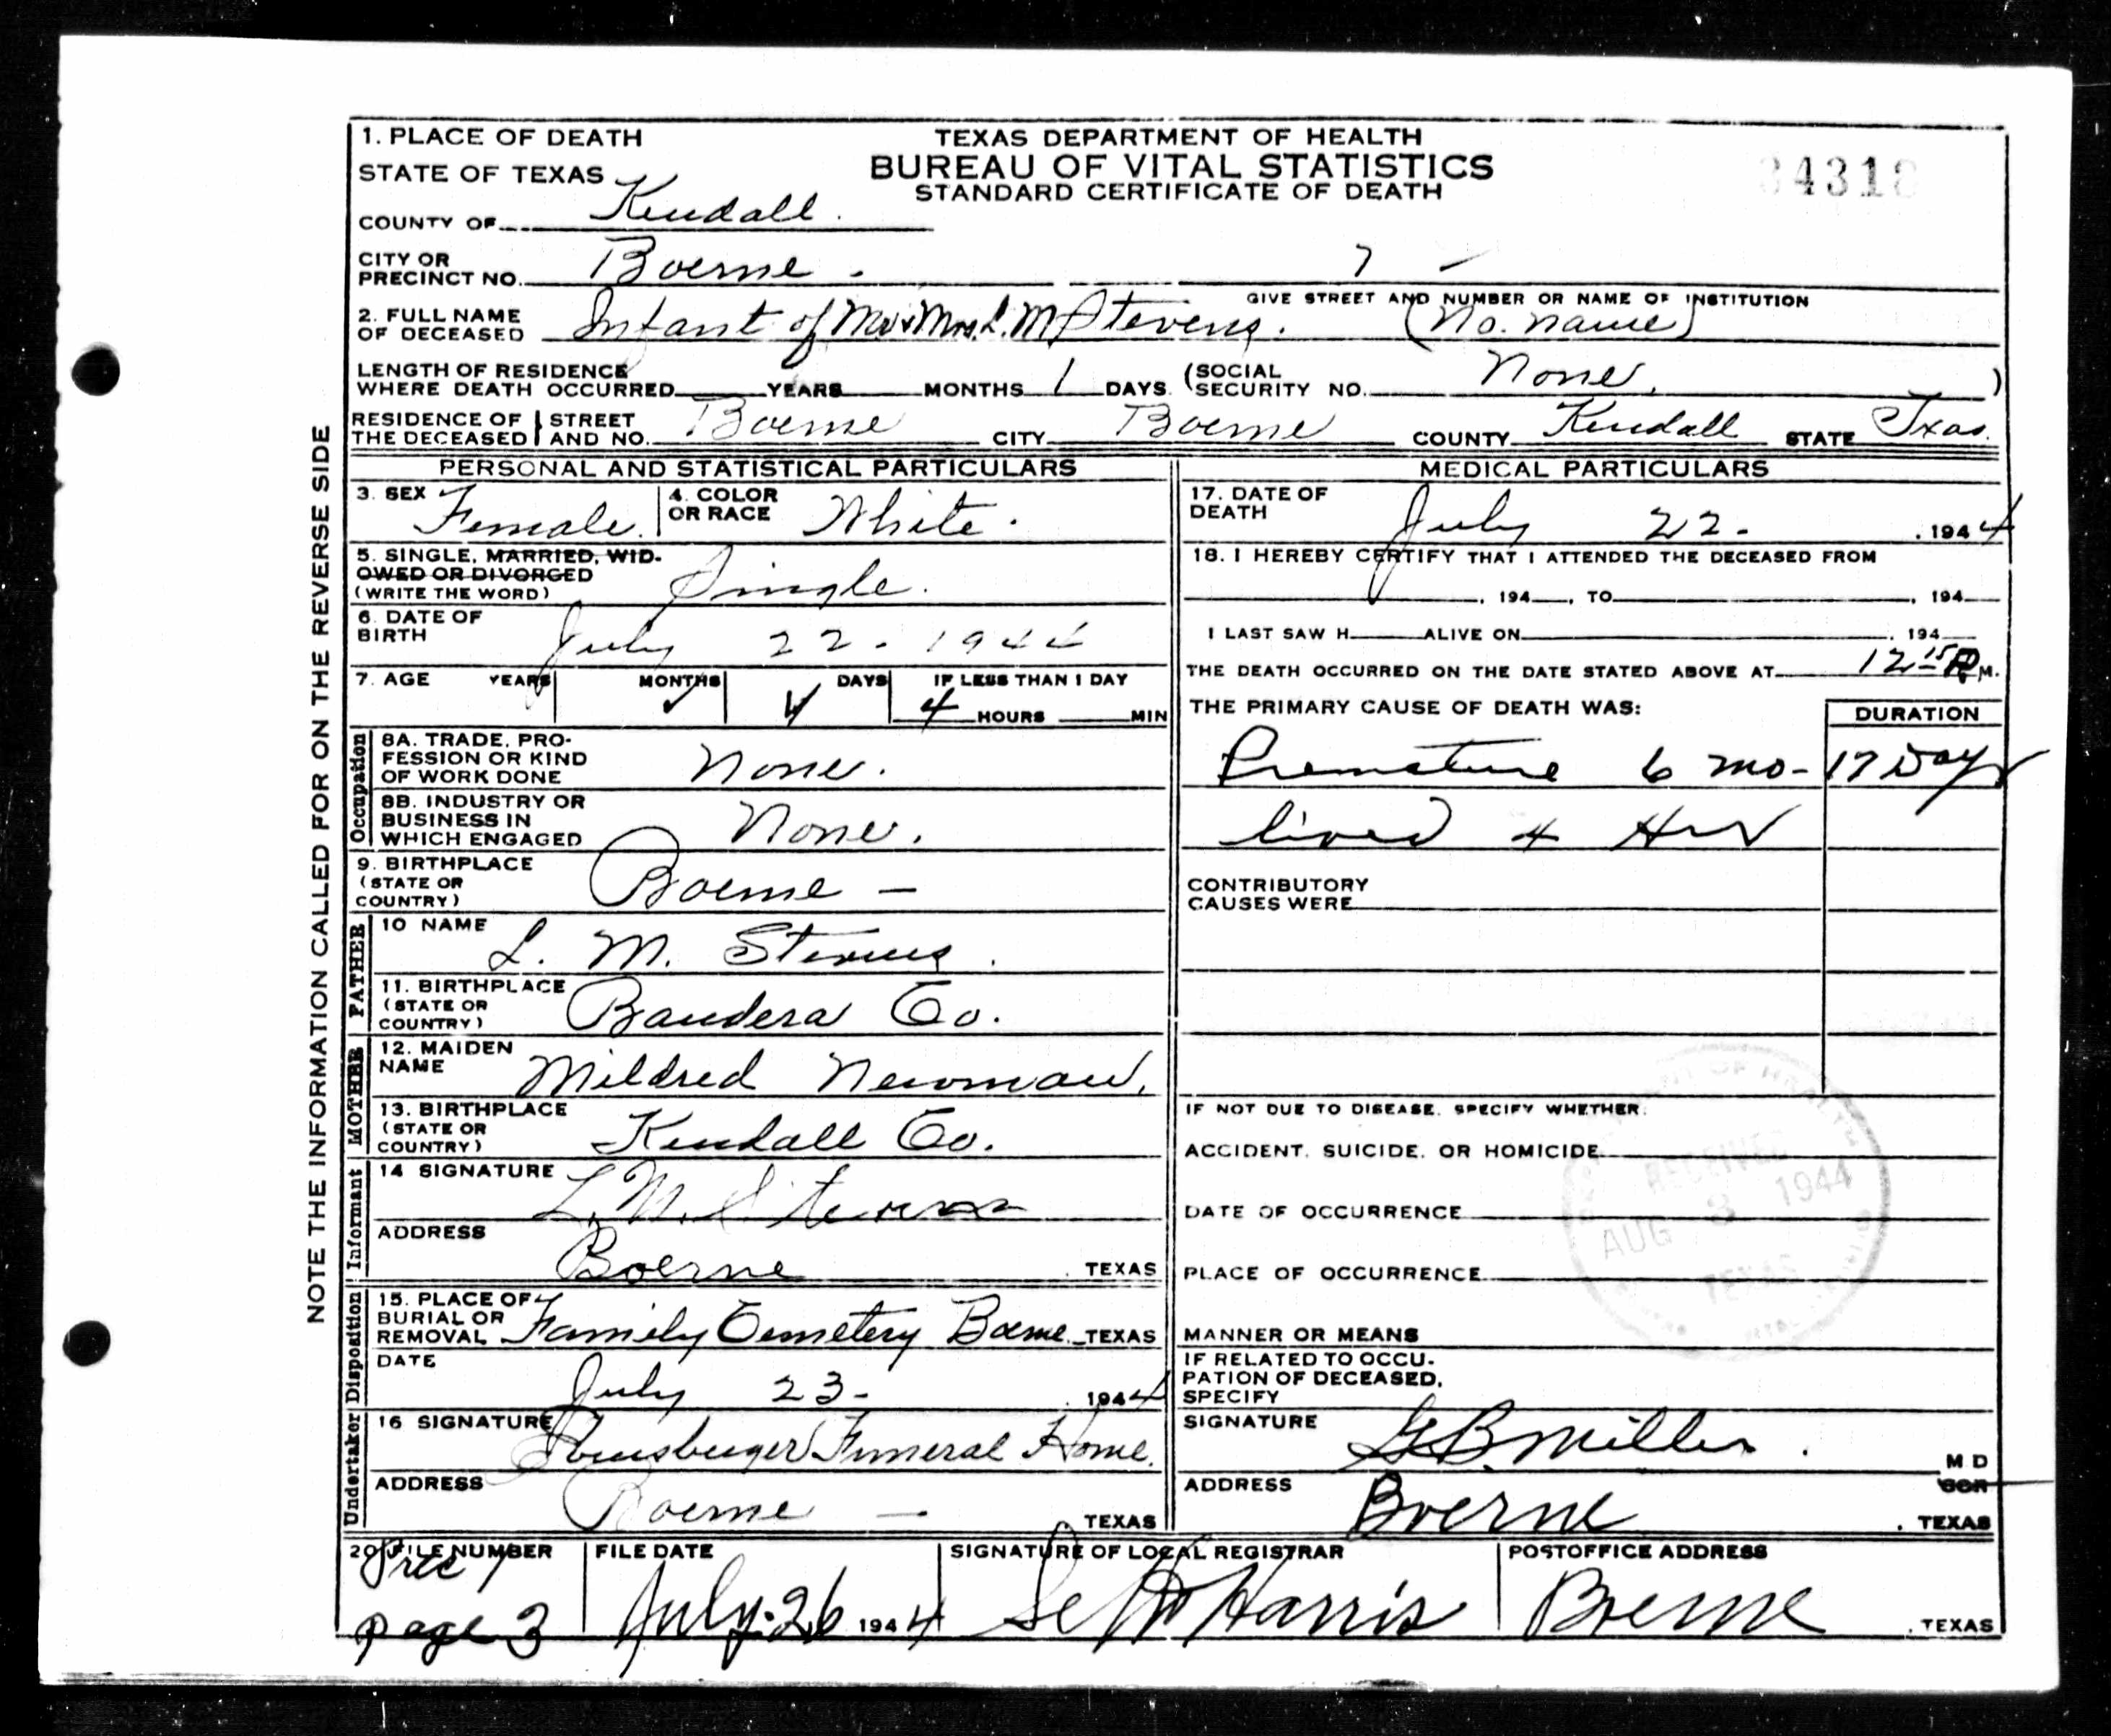 1. PLACE OF DEATH
TEXAS DEPARTMENT OF HEALTH
BUREAU OF VITAL STATISTICS
STANDARD CERTIFICATE OF DEATH
4318
STATE OF TEXAS
COUNTY OF Kendall.
CITY OR PRECINCT NO. Boerne. 7 -
GIVE STREET AND NUMBER OR NAME OF INSTITUTION
2. FULL NAME OF DECEASED Infant of Mr & Mrs. L. M Stevens. (No. name)
LENGTH OF RESIDENCE WHERE DEATH OCCURRED YEARS MONTHS 1 DAYS. (SOCIAL SECURITY NO. None. )
RESIDENCE OF THE DECEASED STREET AND NO. Boerne CITY Boerne COUNTY Kendall STATE Texas.
NOTE THE INFORMATION CALLED FOR ON THE REVERSE SIDE
PERSONAL AND STATISTICAL PARTICULARS
3. SEX Female. 4. COLOR OR RACE White.
5. SINGLE, MARRIED, WIDOWED OR DIVORCED (WRITE THE WORD) Single.
6. DATE OF BIRTH July 22 - 1944
7. AGE YEARS MONTHS DAYS IF LESS THAN 1 DAY
4 HOURS MIN
Occupation
8A. TRADE, PROFESSION OR KIND OF WORK DONE None.
8B. INDUSTRY OR BUSINESS IN WHICH ENGAGED None.
9. BIRTHPLACE (STATE OR COUNTRY) Boerne -
FATHER
10 NAME L. M. Stevens.
11. BIRTHPLACE (STATE OR COUNTRY) Bandera Co.
MOTHER
12. MAIDEN NAME Mildred Newman.
13. BIRTHPLACE (STATE OR COUNTRY) Kendall Co.
Informant
14 SIGNATURE L. M. Stevens
ADDRESS Boerne TEXAS
Disposition
15. PLACE OF BURIAL OR REMOVAL Family Cemetery Boerne TEXAS
DATE July 23 - 1944
Undertaker
16 SIGNATURE Funeral Home.
ADDRESS Boerne - TEXAS
MEDICAL PARTICULARS
17. DATE OF DEATH July 22 - , 1944
18. I HEREBY CERTIFY THAT I ATTENDED THE DECEASED FROM
, 194 , TO , 194
I LAST SAW H ALIVE ON , 194
THE DEATH OCCURRED ON THE DATE STATED ABOVE AT 12 15 P M.
THE PRIMARY CAUSE OF DEATH WAS: DURATION
Premature 6 mo - 17 Days
lived 4 Hrs
CONTRIBUTORY CAUSES WERE
IF NOT DUE TO DISEASE, SPECIFY WHETHER:
ACCIDENT, SUICIDE, OR HOMICIDE
DATE OF OCCURRENCE
PLACE OF OCCURRENCE
MANNER OR MEANS
RECEIVED
AUG 8 1944
TEXAS
IF RELATED TO OCCUPATION OF DECEASED, SPECIFY
SIGNATURE G. B. Miller. M D
ADDRESS Boerne , TEXAS
20. FILE NUMBER Prec 7 page 3
FILE DATE July 26 1944
SIGNATURE OF LOCAL REGISTRAR Harris
POSTOFFICE ADDRESS Boerne , TEXAS